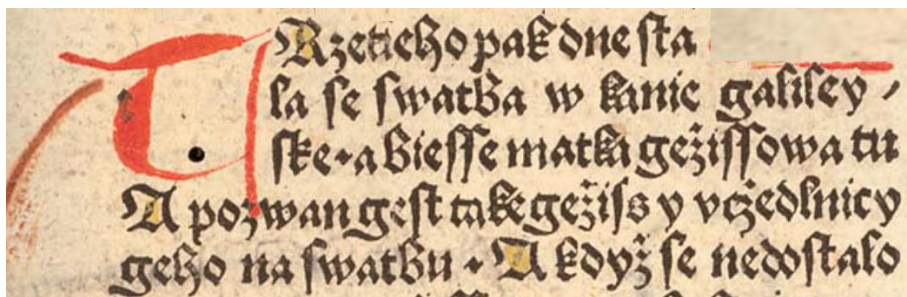 TRzetieho pak dne sta
la se swatba w kanie galiley /
ske · a biesse matka gežissowa tu
A pozwan gest také gežiss y včedlnicy
geho na swatbu · A když se nedostalo